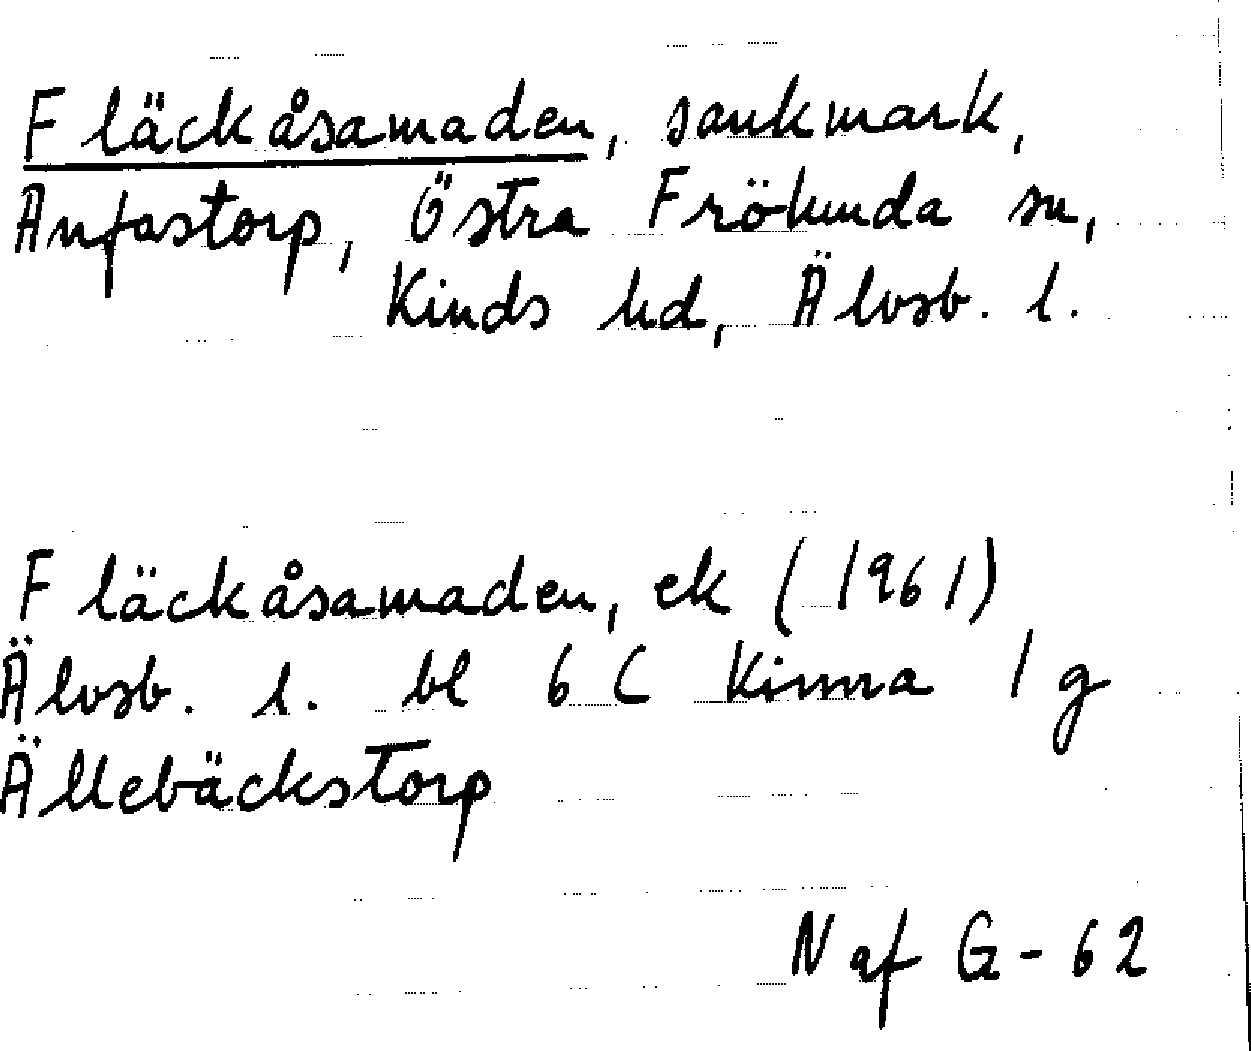 Fläckåsamaden, sankmark,
Anfastorp, Östra Frökunda sn,
Kinds hd, Älvsb. l.
Fläckåsamaden, ek (1961)
Älvsb. l. bl 6 C Kinna 1 g
Ällebäckstorp
N af G-62